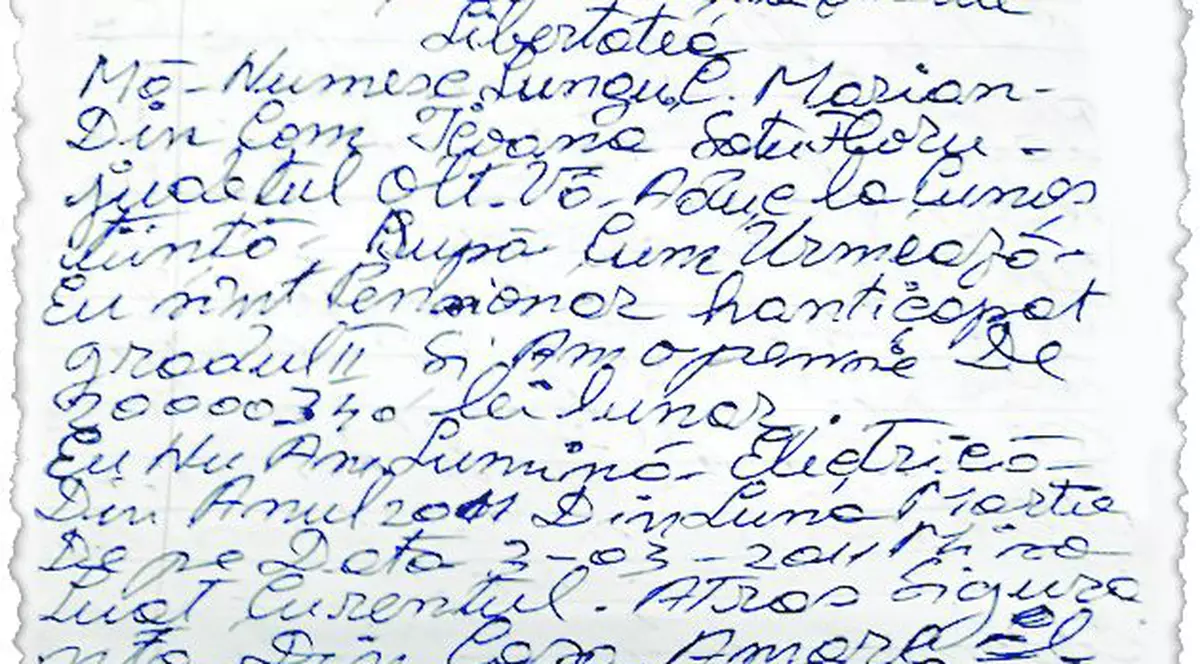 Libertatea
Mă-Numesc Lungu C. Marian-
Din Com Icoana Satu Floru-
judetul Olt. Vă-Aduc la Cunoș
tiintă, După Cum Urmează-
Eu sint Pensionar hanticapat
gradul II Si Am o pensie De
340 lei lunar.
Eu Nu Am Lumină Electrică-
Din Anul 2011 Din Luna Martie
De pe Data 3-03-2011 Mi sa
Luat Curentul. Atras Sigura
nta Din Casa